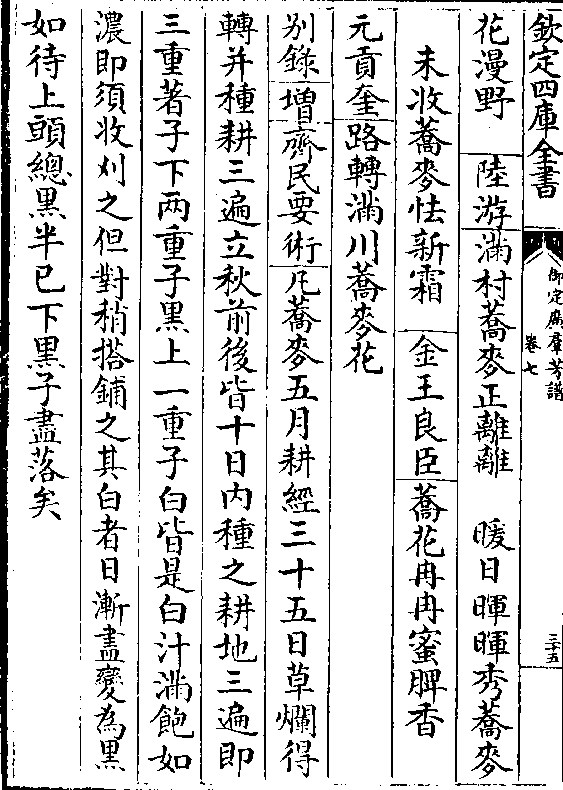 欽定四庫全書
御定廣羣芳譜
卷七
三十五
花漫野　陸游滿村蕎麥正離離　暖日暉暉秀蕎麥
未收蕎麥怯新霜　金王良臣蕎花冉冉蜜脾香
元貢奎路轉滿川蕎麥花
别錄增齊民要術凡蕎麥五月耕經三十五日草爛得
轉并種耕三遍立秋前後皆十日内種之耕地三遍即
三重著子下两重子黑上一重子白皆是白汁滿飽如
濃即須收刈之但對稍搭鋪之其白者日漸盡變為黑
如待上頭總黑半已下黑子盡落矣